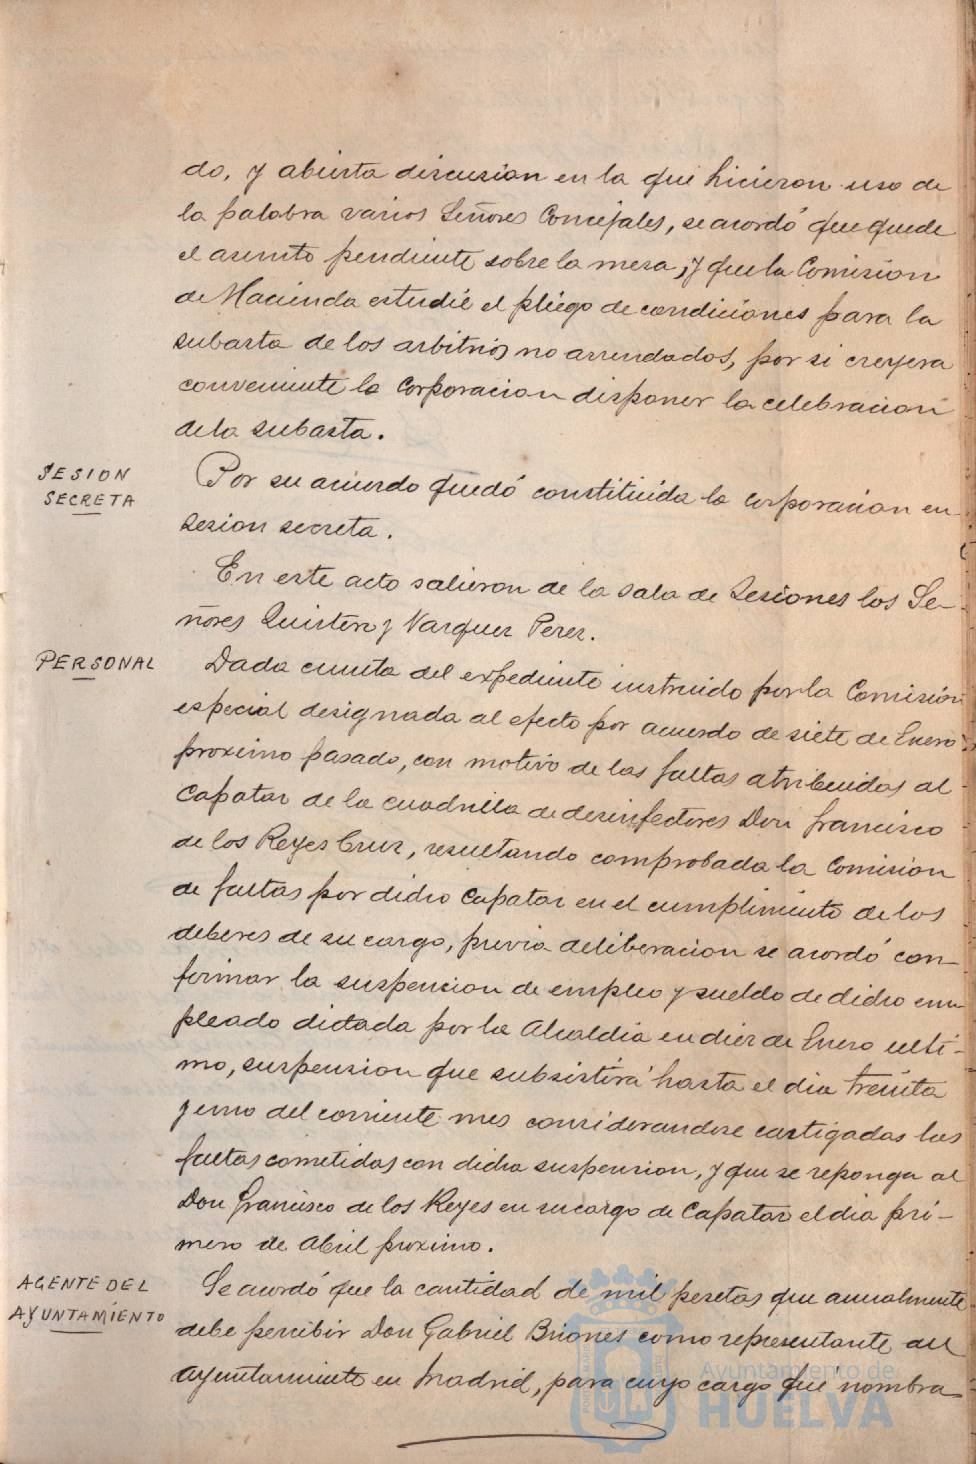 do, y abierta discusion en la que hicieron uso de
la palabra varios Señores Concejales, se acordó que quede
el asunto pendiente sobre la mesa, y que la Comision
de Hacienda estudie el pliego de condiciones para la
subasta de los arbitrios no arrendados, por si creyera
conveniente la Corporacion disponer la celebracion
de la subasta.
SESION
SECRETA
Por su acuerdo quedó constituida la Corporacion en
sesion secreta.
En este acto salieron de la sala de Sesiones los Se-
ñores Quintero y Vazquez Perez.
PERSONAL
Dada cuenta del expediente instruido por la Comisión
especial designada al efecto por acuerdo de siete de Enero
proximo pasado, con motivo de las faltas atribuidas al
Capataz de la cuadrilla de desinfectores Don Francisco
de los Reyes Cruz, resultando comprobada la Comision
de faltas por dicho Capataz en el cumplimiento de los
deberes de su cargo, previa deliberacion se acordó con-
firmar la suspencion de empleo y sueldo de dicho em-
pleado dictada por la Alcaldia en diez de Enero ulti-
mo, suspension que subsistirá hasta el dia treinta
y uno del corriente mes considerandose castigadas las
faltas cometidas con dicha suspension, y que se reponga al
Don Francisco de los Reyes en su cargo de Capataz el dia pri-
mero de Abril proximo.
AGENTE DEL
AYUNTAMIENTO
Se acordó que la cantidad de mil pesetas que anualmente
debe percibir Don Gabriel Briones como representante del
Ayuntamiento en Madrid, para cuyo cargo fué nombra
Ayuntamiento de
HUELVA